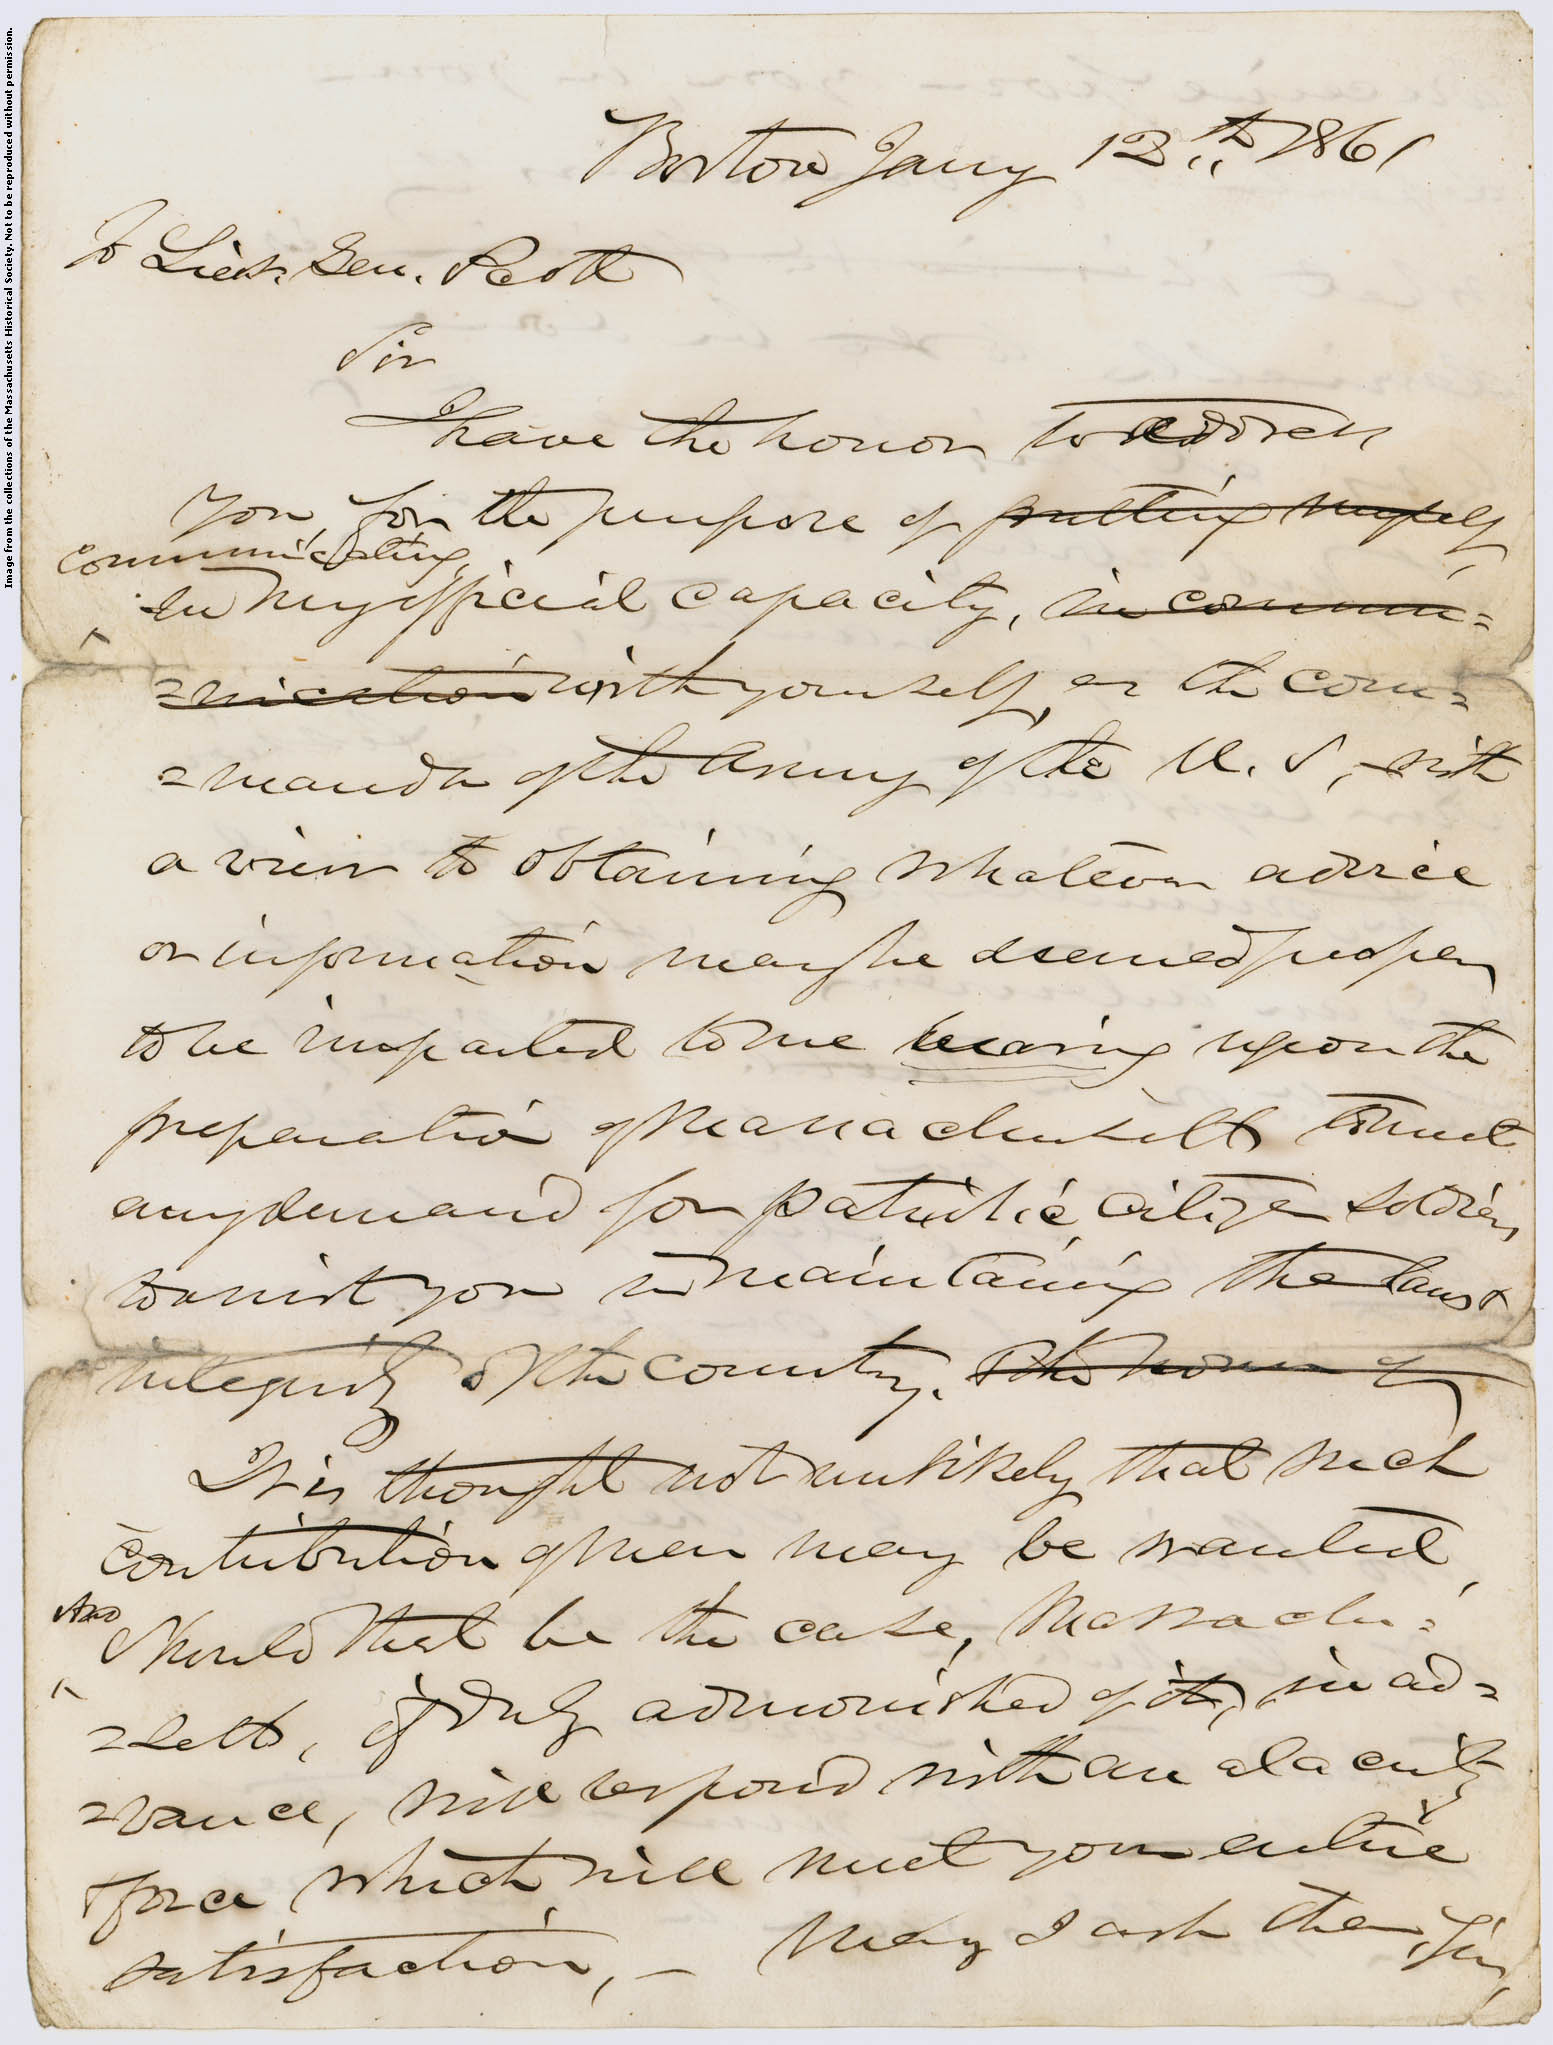 Image from the collections of the Massachusetts Historical Society. Not to be reproduced without permission.
Boston Jany 12th 1861
To Lieut. Gen. Scott
Sir
I have the honor to address
you, for the purpose of putting myself,
communicating,
in my official capacity, in commu=
=nication with yourself, as the com=
=mander of the Army of the U. S, with
a view to obtaining whatever advice
or information may be deemed proper
to be imparted to me bearing upon the
preparation of Massachusetts to meet
any demand for patriotic citizen soldiers
to assist you in maintaining the laws &
integrity of the country. The honor of
It is thought not unlikely that such
contribution of men may be wanted,
And
should that be the case, Massachu=
=setts, if duly admonished of it, in ad=
=vance, will respond with an alacrity
& force which will meet your entire
satisfaction, – May I ask then, Sir,